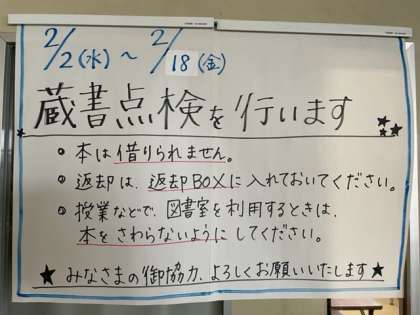 2/2(水)～2/18(金)
蔵書点検を行います
・本は借りられません。
・返却は、返却BOXに入れておいてください。
・授業などで、図書室を利用するときは、
本をさわらないようにしてください。
★みなさまの御協力、よろしくお願いいたします★